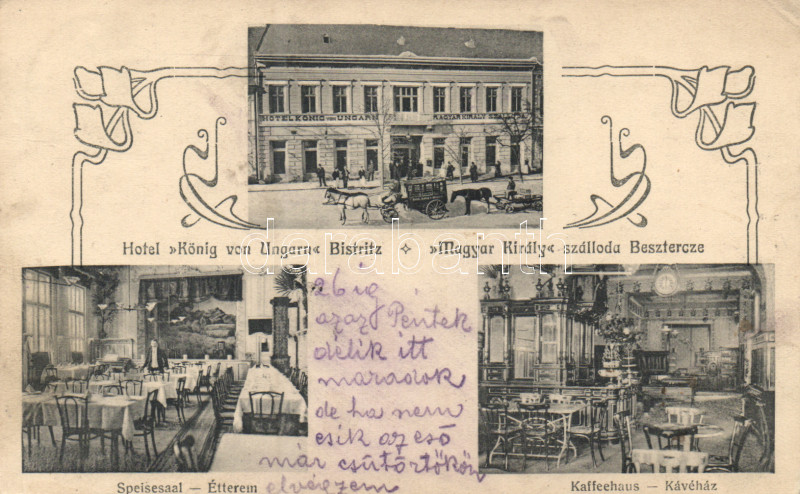 HOTEL KÖNIG VON UNGARN MAGYAR KIRÁLY SZÁLLODA
Hotel »König von Ungarn« Bistritz ✦ »Magyar Király« szálloda Besztercze
darabanth
26 ig
azaz Péntek
délik itt
maradok
de ha nem
esik az eső
már csütörtökön
elvégzem
Speisesaal — Étterem
Kaffeehaus — Kávéház